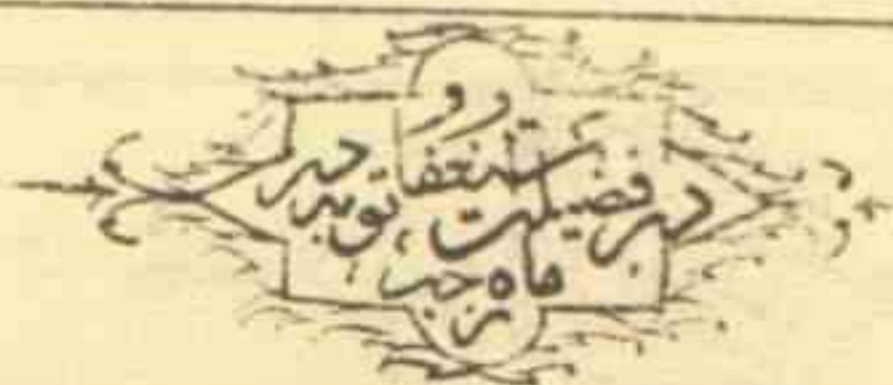 در فضیلت استغفار و توبه در
ماه رجب